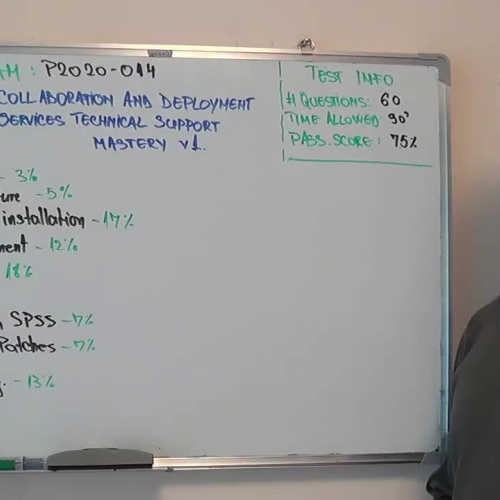 TM : P2020-014
COLLABORATION AND DEPLOYMENT
SERVICES TECHNICAL SUPPORT
MASTERY v1.
TEST INFO
# QUESTIONS: 60
TIME ALLOWED: 90'
PASS. SCORE: 75%
- 3%
ure - 5%
installation - 17%
ment - 12%
18%
, SPSS - 7%
Patches - 7%
g. - 13%